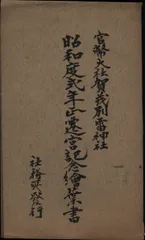 官幣大社賀茂別雷神社
昭和度式年正遷宮記念繪葉書
社務所發行